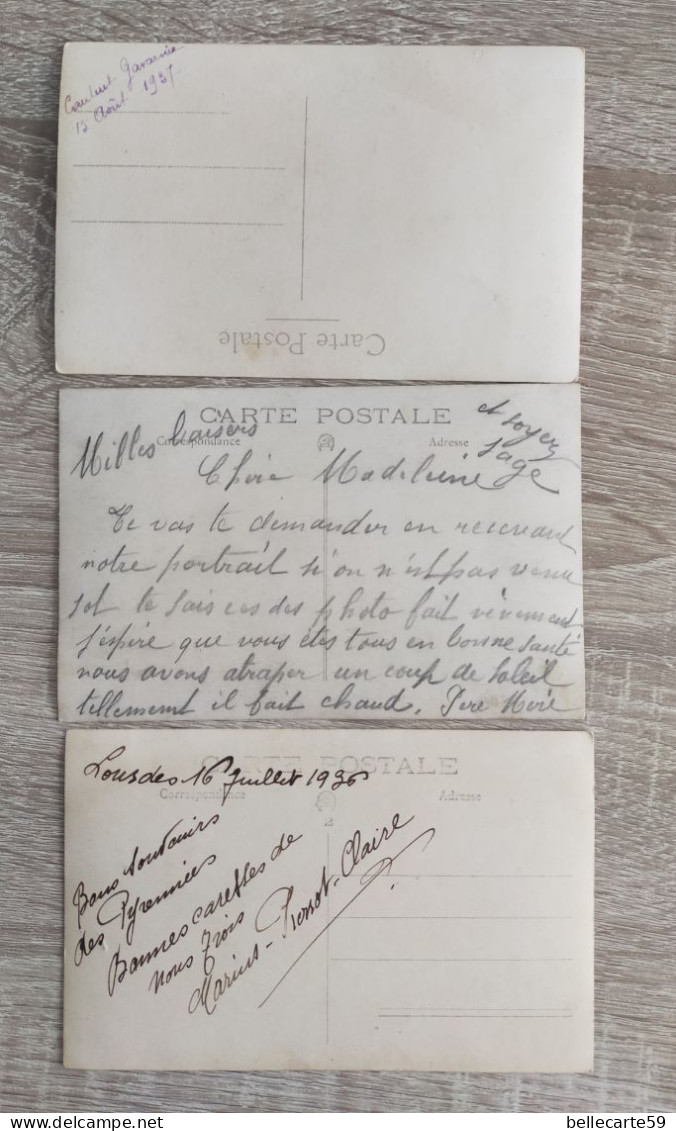 Gavarnie
13 Août 1937
Carte Postale
CARTE POSTALE
Correspondance
Adresse
Milles baisers
et soyez
sage
Chère Madeleine
Te vas te demander en recevant
notre portrait si on n'est pas venu
sot te sais ces des photo fait vivement
J'espère que vous êtes tous en bonne santé
nous avons atraper un coup de soleil
tellement il fait chaud. Père Mère
CARTE POSTALE
Lourdes 16 Juillet 1936
Correspondance
Adresse
2
Bons Souvenirs
des Pyrennées
Bonnes caresses de
nous trois
Marius - Claire
bellecarte59